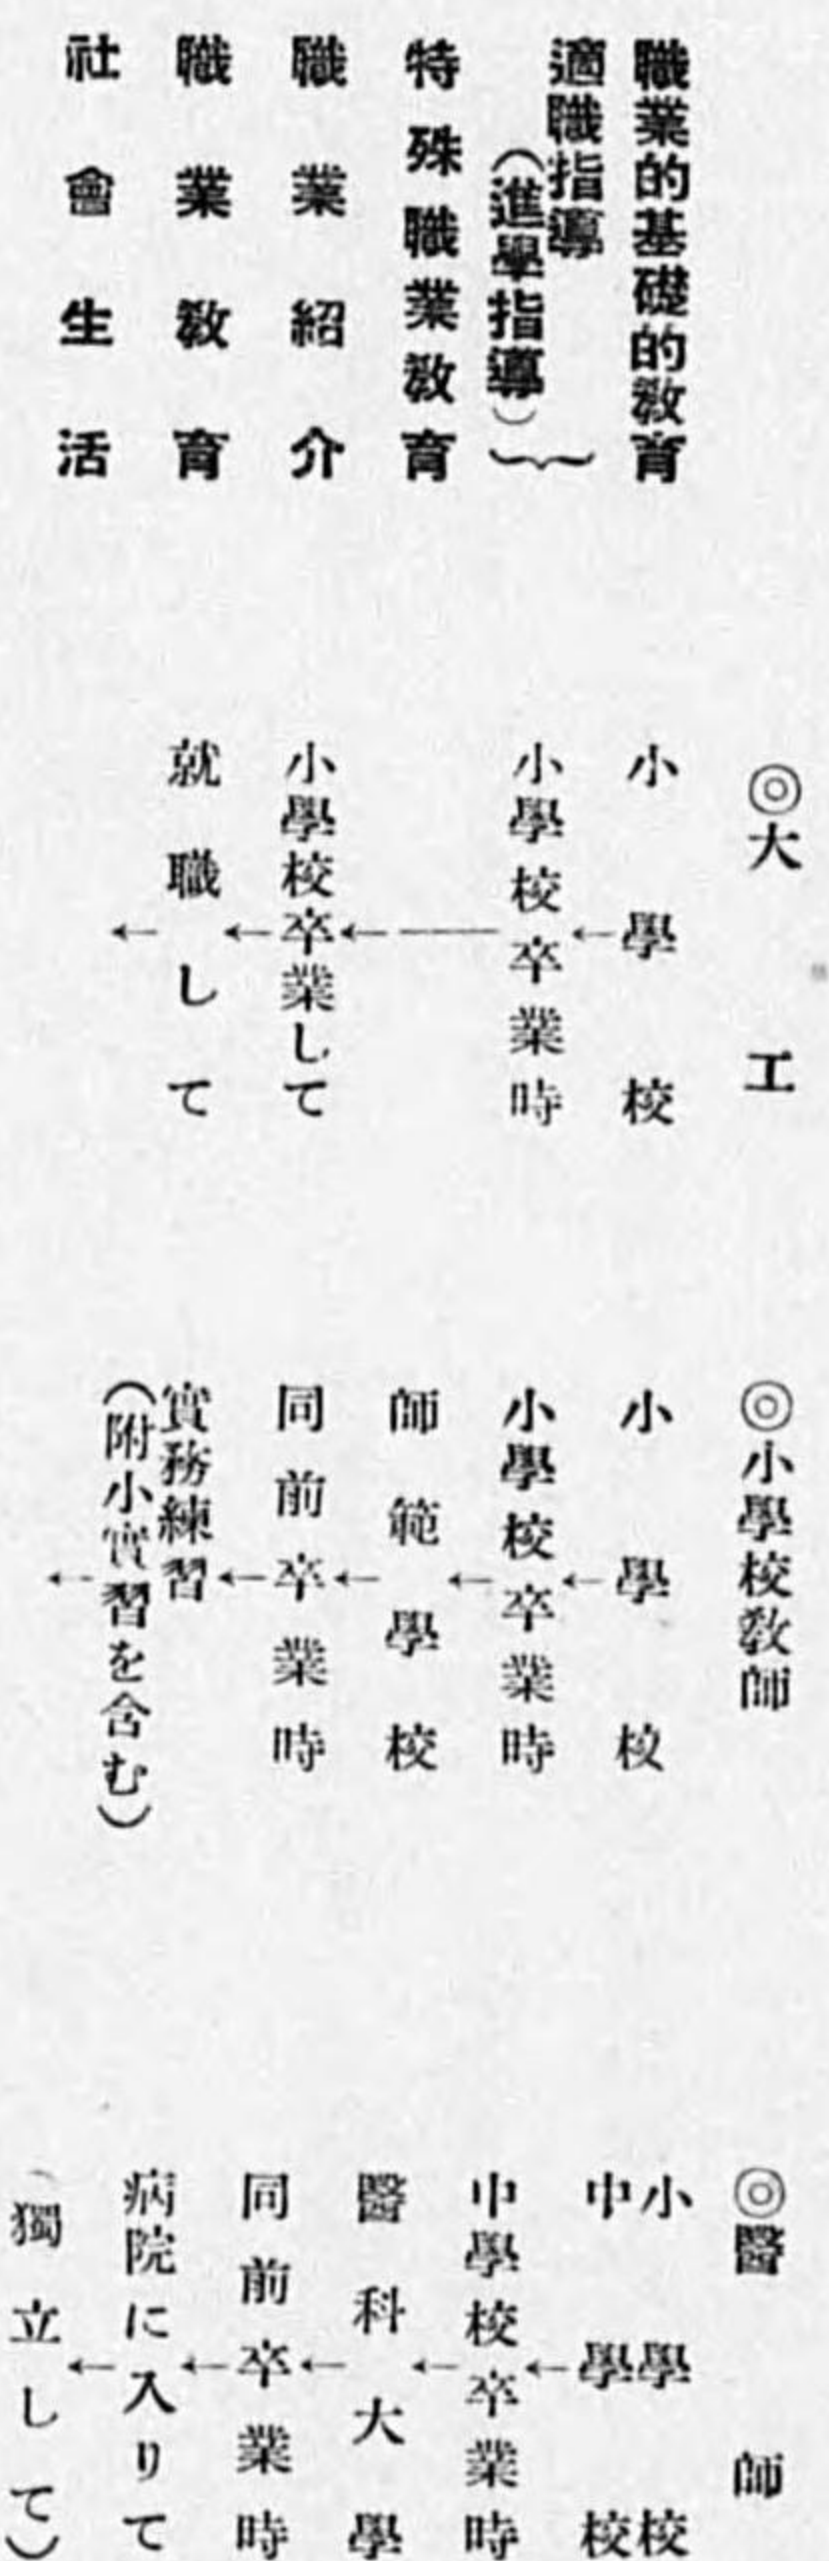 職業的基礎的教育
適職指導
（進學指導）
特殊職業教育
職業紹介
職業教育
社會生活
◎大工
小學校
小學校卒業時
小學校卒業して
就職して
◎小學校教師
小學校
小學校卒業時
師範學校
同前卒業時
實務練習
（附小實習を含む）
◎醫師
小學校
中學校
中學校卒業時
醫科大學
同前卒業時
病院に入りて
（獨立して）